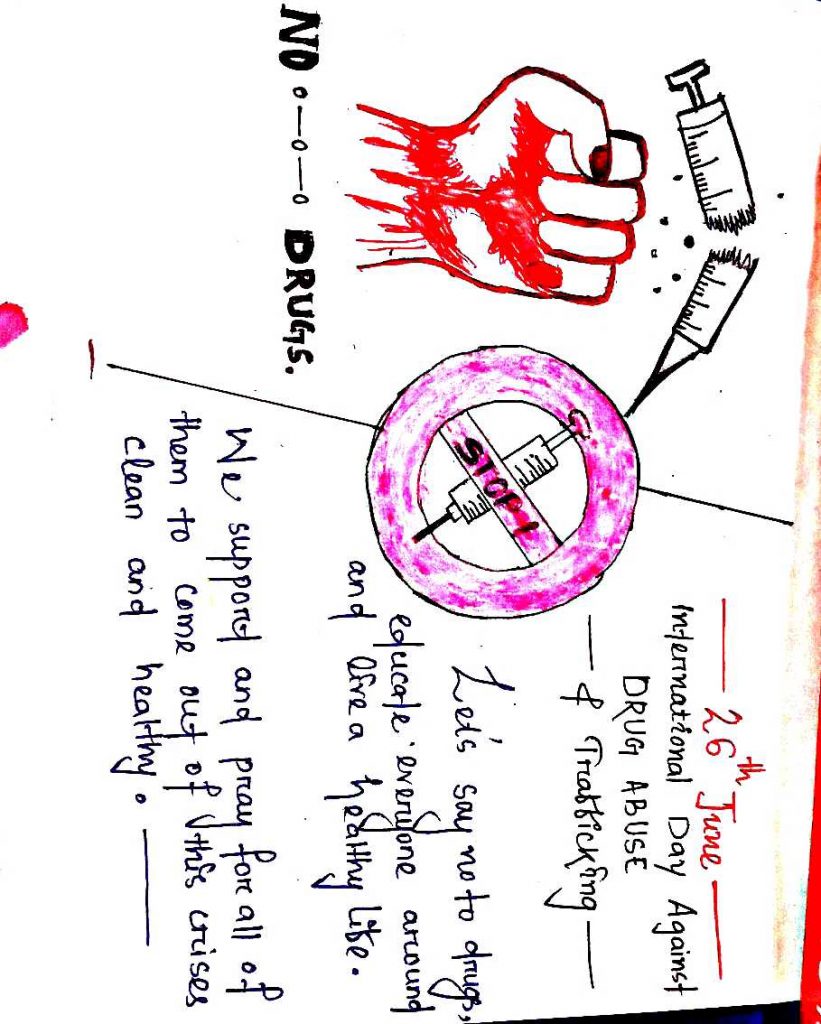 NO DRUGS.
STOP !
26th June
International Day Against
DRUG ABUSE
& Trafficking
Let's say no to drugs,
educate everyone around
and live a healthy life.
We support and pray for all of
them to come out of this crises
clean and healthy.